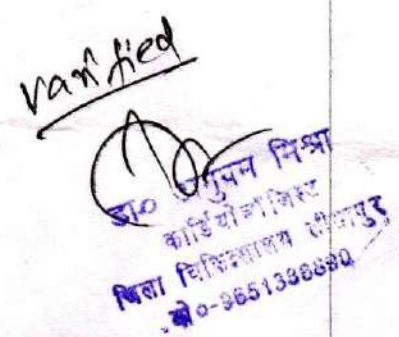 varified
डा० मिश्रा
कार्डियोलॉजिस्ट
जिला चिकित्सालय
मो०-9651398690